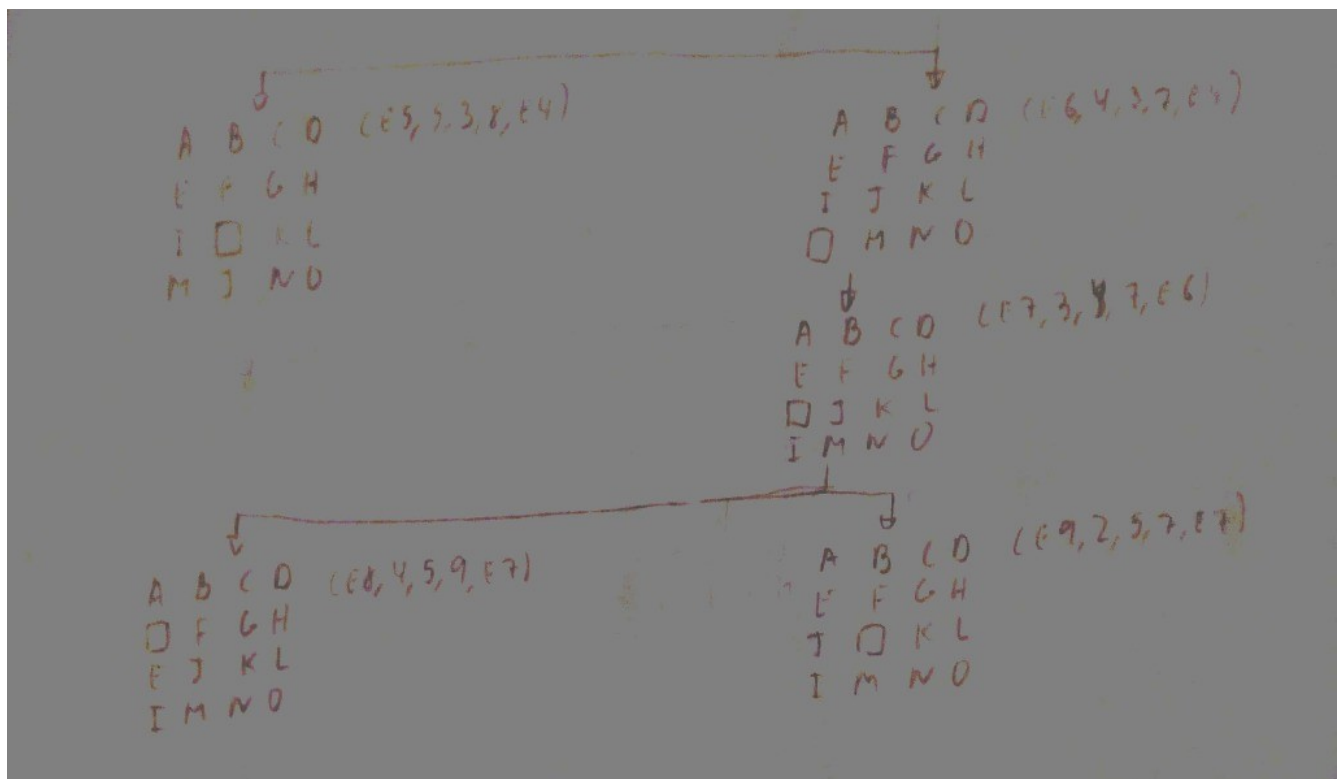 A B C D (E5, 5, 3, 8, E4)
E F G H
I □ K L
M J N O
A B C D (E6, 4, 3, 7, E4)
E F G H
I J K L
□ M N O
A B C D (E7, 3, 4, 7, E6)
E F G H
□ J K L
I M N O
A B C D (E8, 4, 5, 9, E7)
□ F G H
E J K L
I M N O
A B C D (E9, 2, 5, 7, E7)
E F G H
J □ K L
I M N O